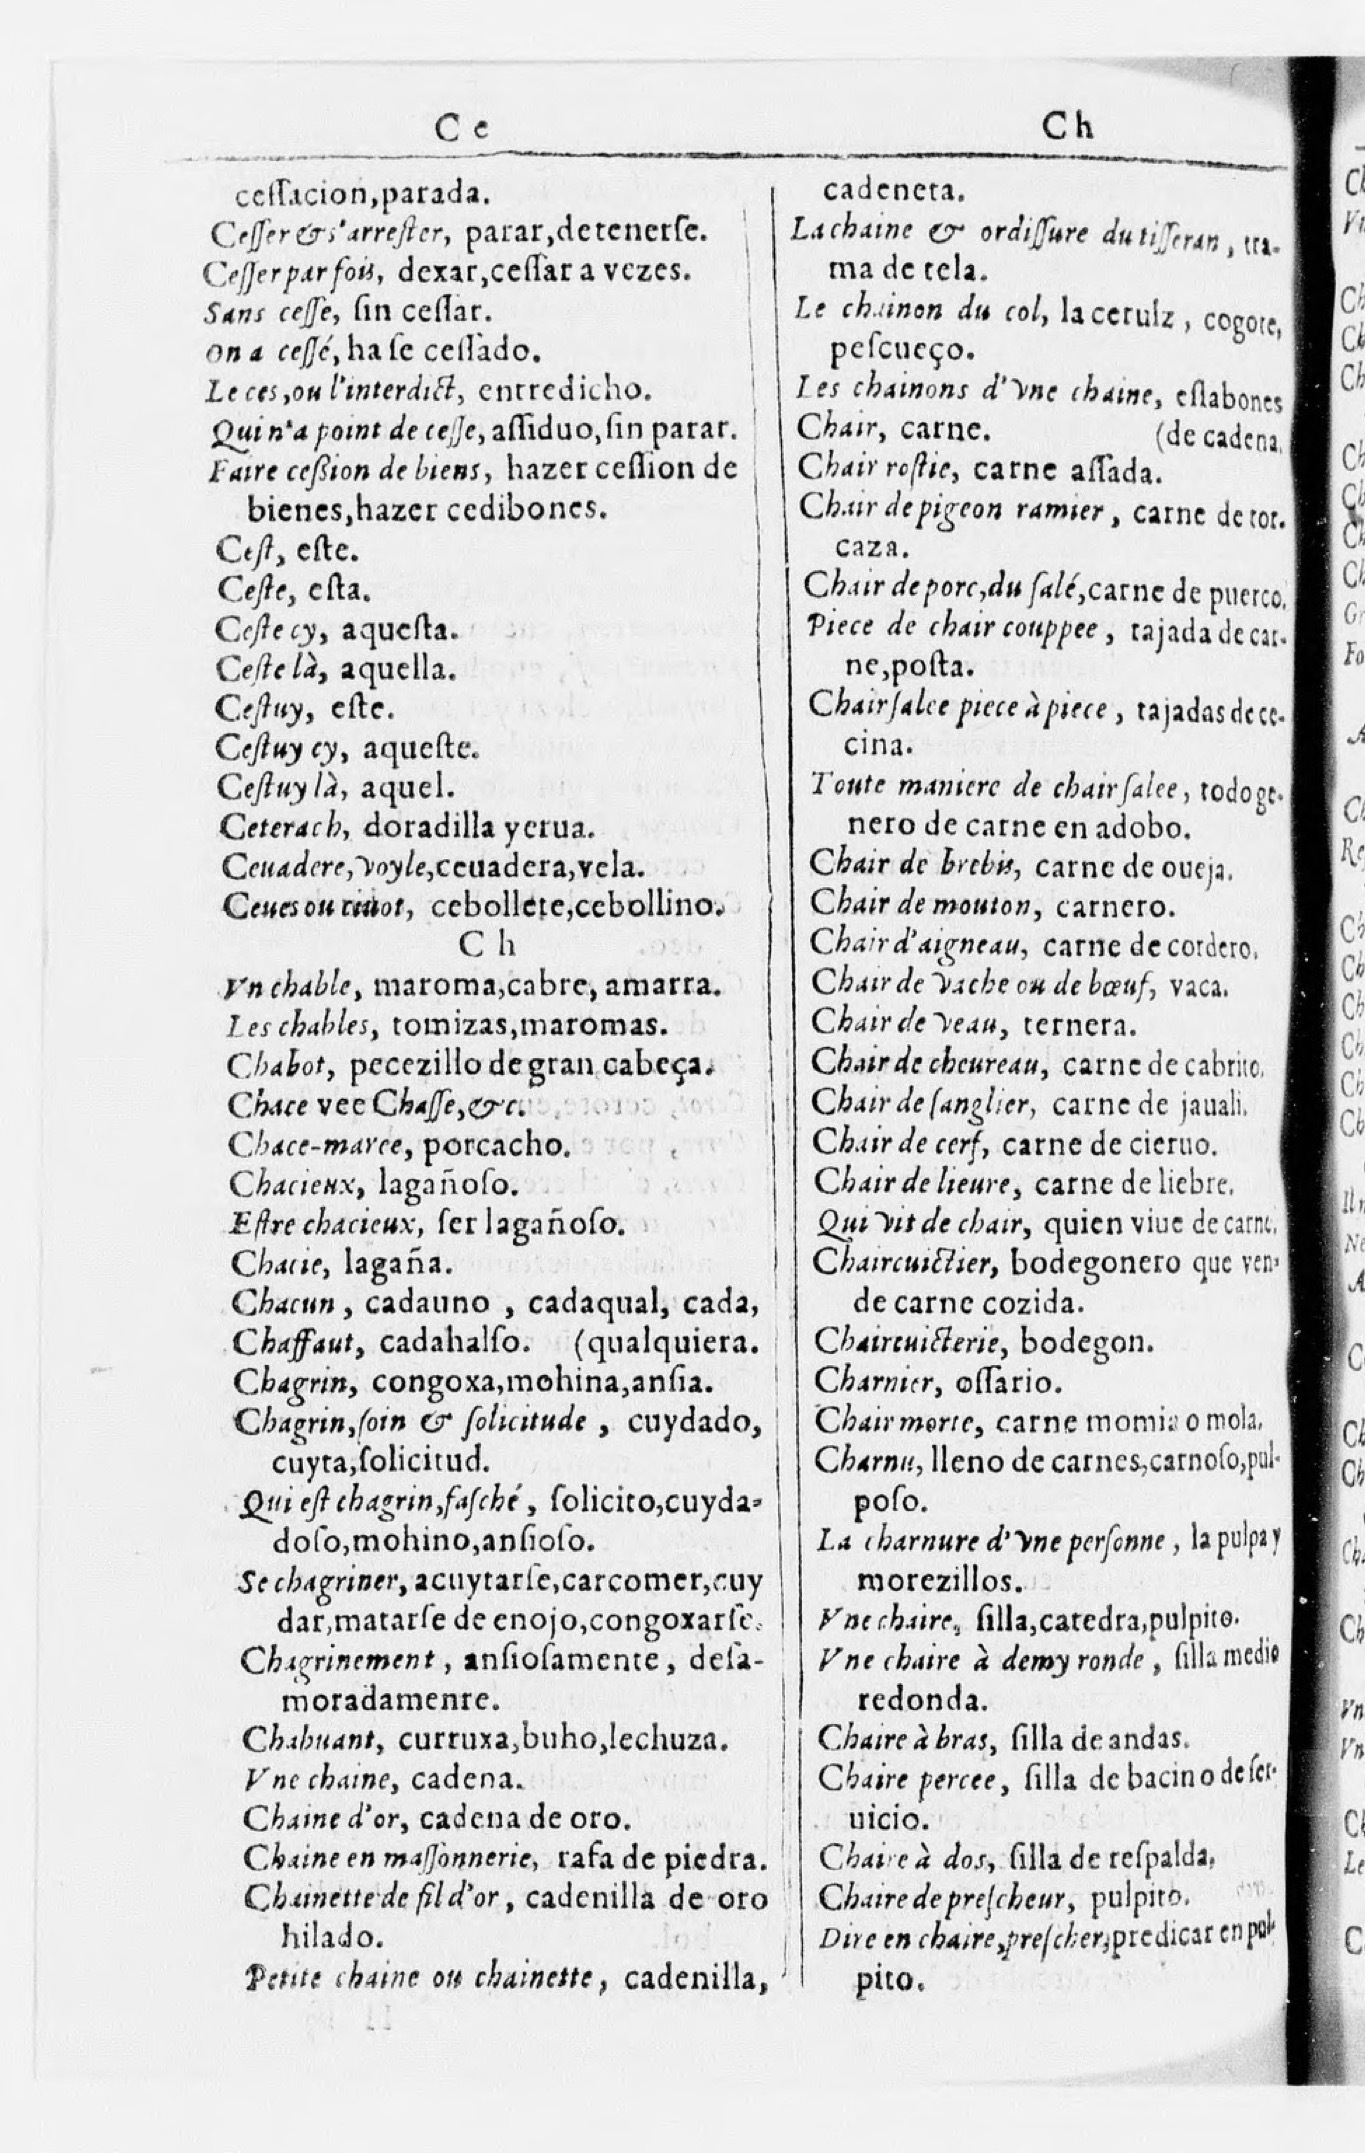 Ce
ceſſacion,parada.
Ceſſer & s'arreſter, parar,detenerſe.
Ceſſer par fois, dexar,ceſſar a vezes.
Sans ceſſe, ſin ceſſar.
On a ceſſé, ha ſe ceſſado.
Le ces,ou l'interdict, entredicho.
Qui n'a point de ceſſe, aſſiduo,ſin parar.
Faire ceßion de biens, hazer ceſſion de
bienes,hazer cedibones.
Ceſt, eſte.
Ceſte, eſta.
Ceſte cy, aqueſta.
Ceſte là, aquella.
Ceſtuy, eſte.
Ceſtuy cy, aqueſte.
Ceſtuy là, aquel.
Ceterach, doradilla yerua.
Ceuadere, voyle,ceuadera,vela.
Ceues ou ciuot, cebollete,cebollino.
Ch
Vn chable, maroma,cabre, amarra.
Les chables, tomizas,maromas.
Chabot, pecezillo de gran cabeça.
Chace vee Chaſſe,&c.
Chace-maree, porcacho.
Chacieux, lagañoſo.
Eſtre chacieux, ſer lagañoſo.
Chacie, lagaña.
Chacun, cadauno, cadaqual, cada,
Chaffaut, cadahalſo. (qualquiera.
Chagrin, congoxa,mohina,anſia.
Chagrin,ſoin & ſolicitude, cuydado,
cuyta,ſolicitud.
Qui eſt chagrin,faſché, ſolicito,cuyda-
doſo,mohino,anſioſo.
Se chagriner, acuytarſe,carcomer,cuy
dar,matarſe de enojo,congoxarſe.
Chagrinement, anſioſamente, deſa-
moradamente.
Chahuant, curruxa,buho,lechuza.
Vne chaine, cadena.
Chaine d'or, cadena de oro.
Chaine en maſſonnerie, rafa de piedra.
Chainette de fil d'or, cadenilla de oro
hilado.
Petite chaine ou chainette, cadenilla,
Ch
cadeneta.
La chaine & ordiſſure du tiſſeran, tra-
ma de tela.
Le chainon du col, la ceruiz, cogote,
peſcueço.
Les chainons d'vne chaine, eſlabones
Chair, carne. (de cadena.
Chair roſtie, carne aſſada.
Chair de pigeon ramier, carne de tor-
caza.
Chair de porc,du ſalé,carne de puerco.
Piece de chair couppee, tajada de car-
ne,poſta.
Chair ſalee piece à piece, tajadas de ce-
cina.
Toute maniere de chair ſalee, todo ge-
nero de carne en adobo.
Chair de brebis, carne de oueja.
Chair de mouton, carnero.
Chair d'aigneau, carne de cordero.
Chair de vache ou de bœuf, vaca.
Chair de veau, ternera.
Chair de cheureau, carne de cabrito.
Chair de ſanglier, carne de jauali.
Chair de cerf, carne de cieruo.
Chair de lieure, carne de liebre.
Qui vit de chair, quien viue de carne.
Chaircuictier, bodegonero que ven-
de carne cozida.
Chaircuicterie, bodegon.
Charnier, oſſario.
Chair morte, carne momia o mola.
Charnu, lleno de carnes,carnoſo,pul-
poſo.
La charnure d'vne perſonne, la pulpa y
morezillos.
Vne chaire, ſilla,catedra,pulpito.
Vne chaire à demy ronde, ſilla medio
redonda.
Chaire à bras, ſilla de andas.
Chaire percee, ſilla de bacin o de ſer-
uicio.
Chaire à dos, ſilla de reſpalda.
Chaire de preſcheur, pulpito.
Dire en chaire,preſcher,predicar en pul-
pito.